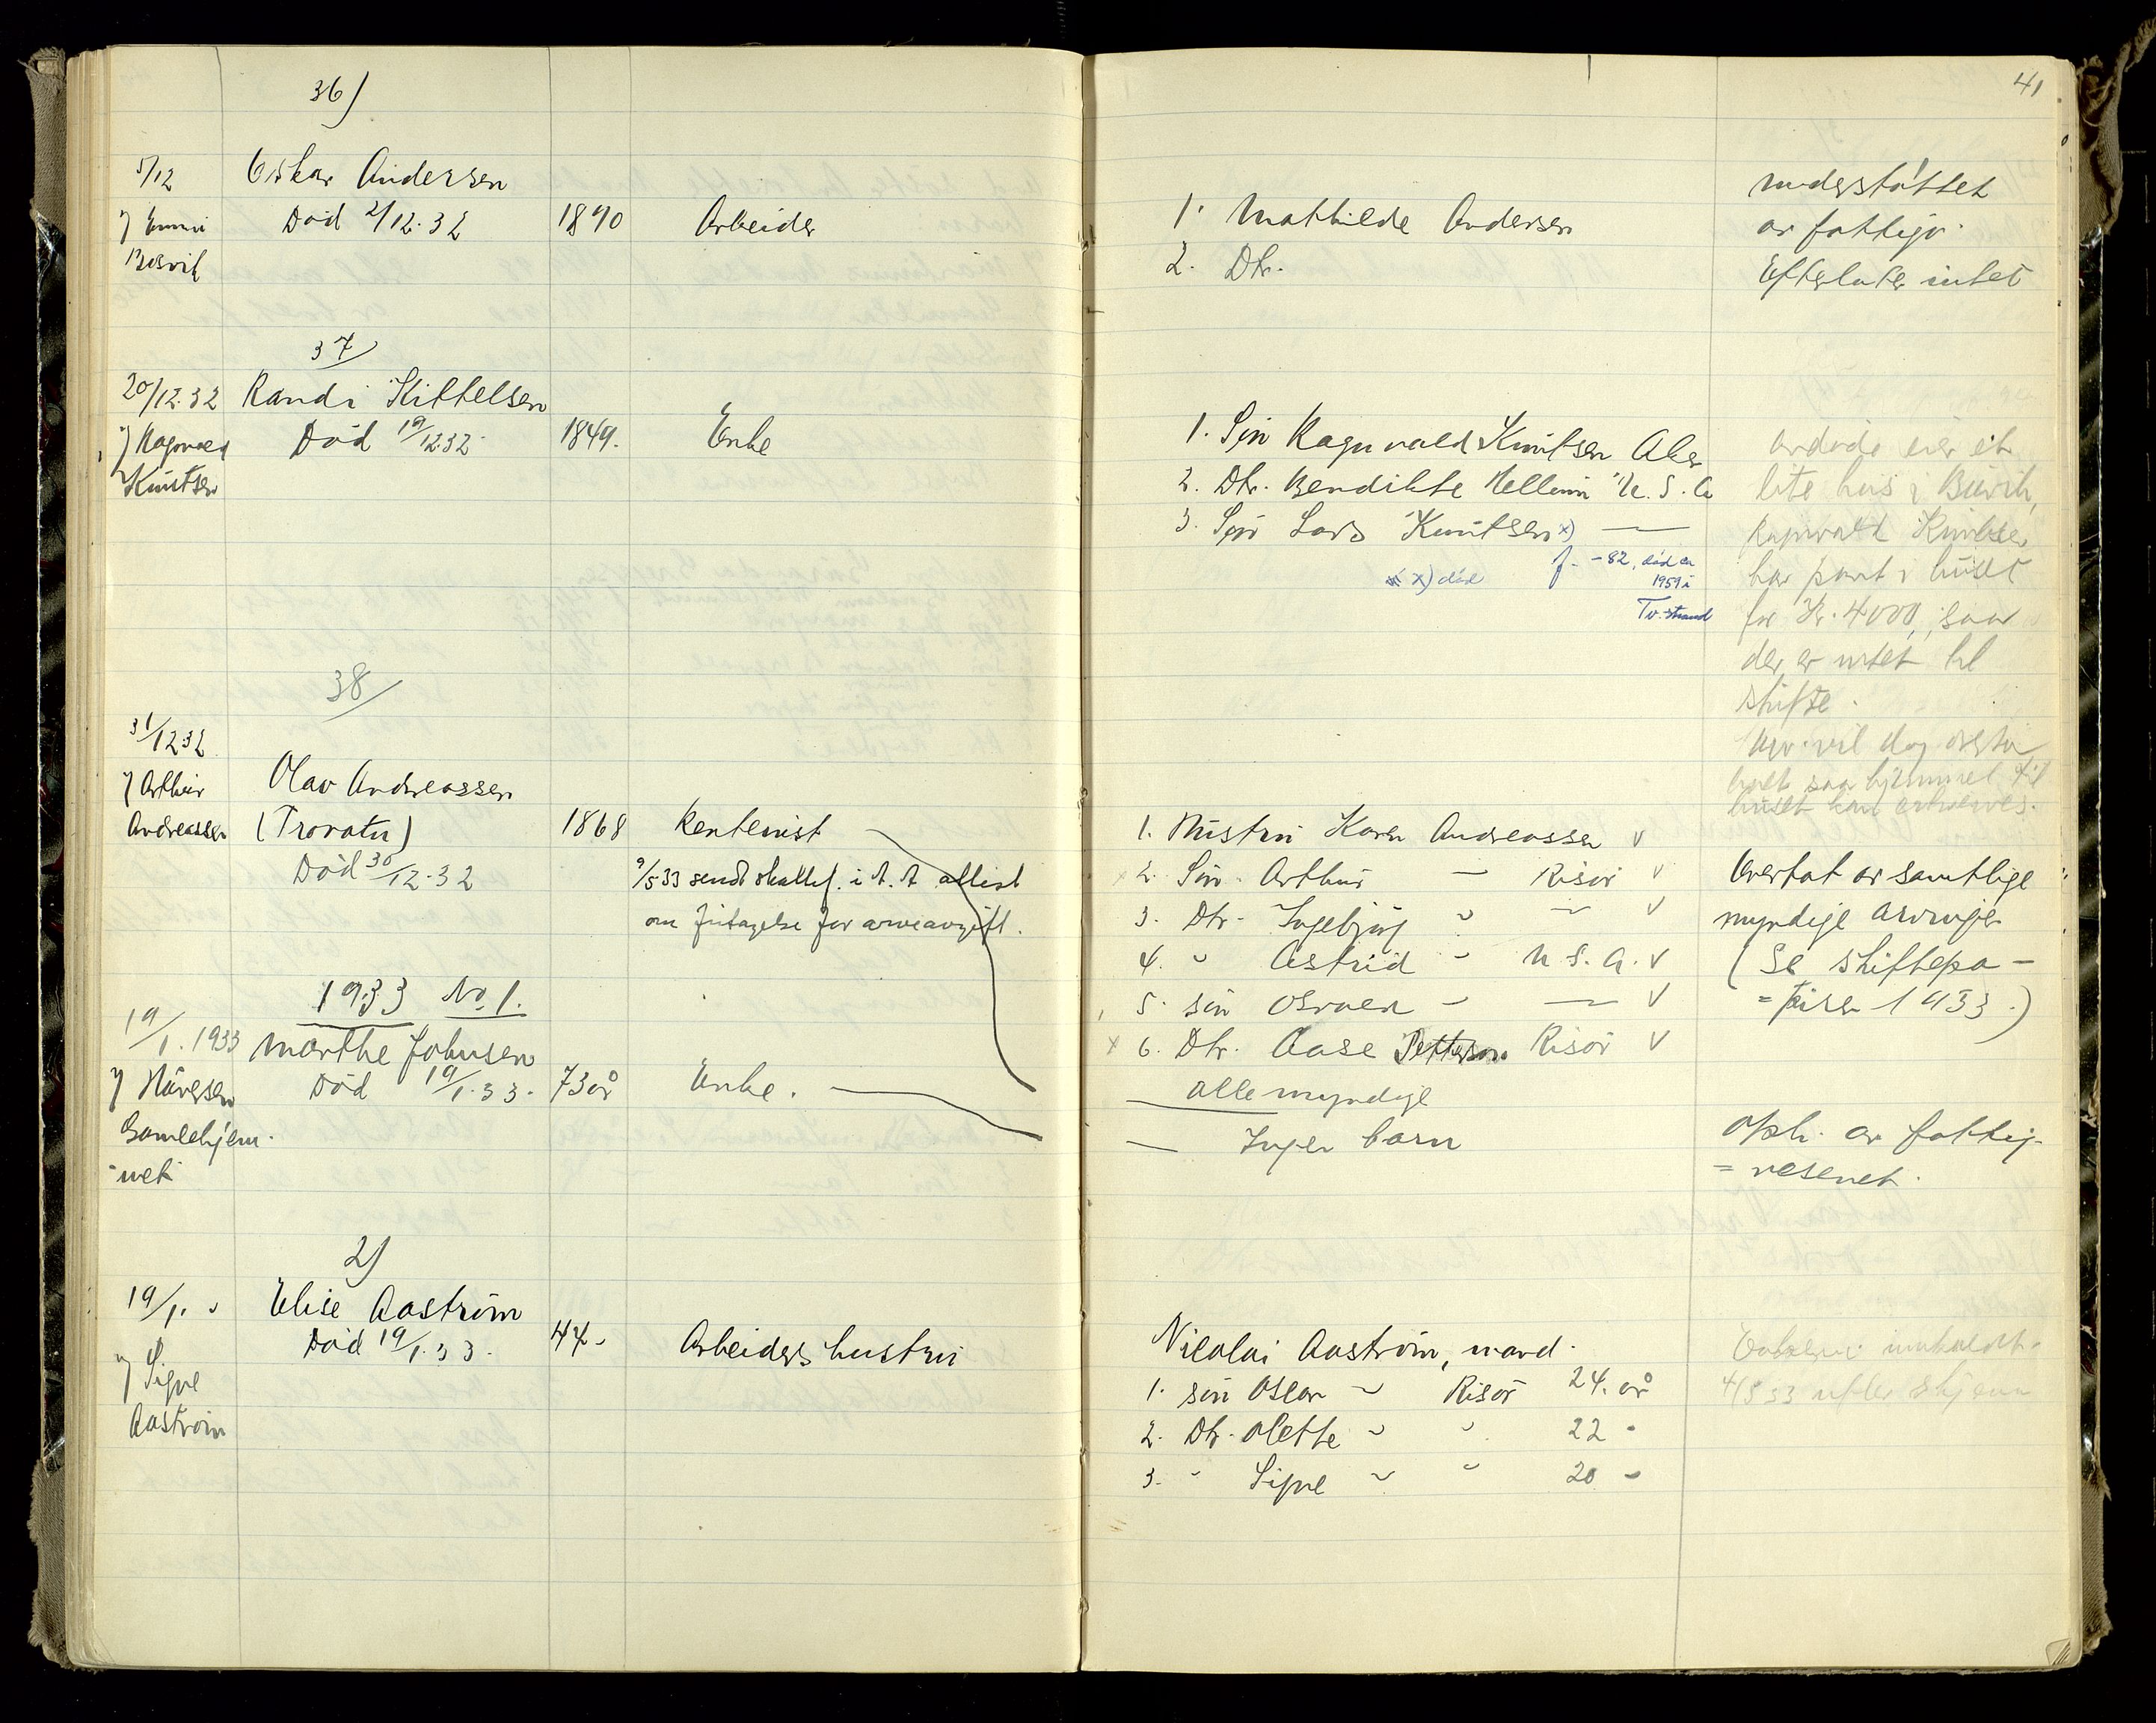 41
36)
5/12
Oskar Andersen
Død 2/12.32
1890
Arbeider
1. Mathilde Andersen
2. Dtr.
understøttet
av fattigv.
Efterlater intet
37
20/12.32
Randi Kittelsen
Død 19/12.32
1849.
Enke
Ragnvald
Knutsen
1. Søn Ragnvald Knutsen
2. Dtr. Bendikte U.S.A
3. Søn Lars Knutsen x) —
x) død
f. -82, død
1959 i
Tv.strand
Avdøde eier et
lite hus i
Ragnvald Knutsen
har pant i huset
for Kr. 4000, saa
der er intet til
skifte.
saa hjemmel til
huset kan erhverves.
38
31/12.32
Arthur
Andreassen
Olav Andreassen
Død 30/12.32
1868
Rentenist
9/5 33 sendt skattef. i A. A attest
om fritagelse for arveavgift.
1. Hustru Karen Andreassen v
2. Søn Arthur — Risør v
3. Dtr. Ingebjørg " — v
4. " Astrid - U.S.A. v
5. søn Osvald - — v
6. Dtr. Aase Pettersen Risør v
alle myndige
Overtat av samtlige
myndige arvinger
(Se skiftepa-
=pirer 1933.)
1933 No. 1.
19/1.1933
Marthe Johnsen
Død 19/1.33.
73 år
Enke.
Gamlehjem-
met
Ingen barn
av fattig-
=vesenet.
2)
19/1. "
Elise Aastrøm
Død 19/1.33.
44 -
Arbeiders hustru
Signe
Aastrøm
Nicolai Aastrøm, mand.
1. søn Oscar " Risør 24. år
2. Dtr. Olette " " 22 "
3. " Signe " " 20 "
4/5 33 efter skjema